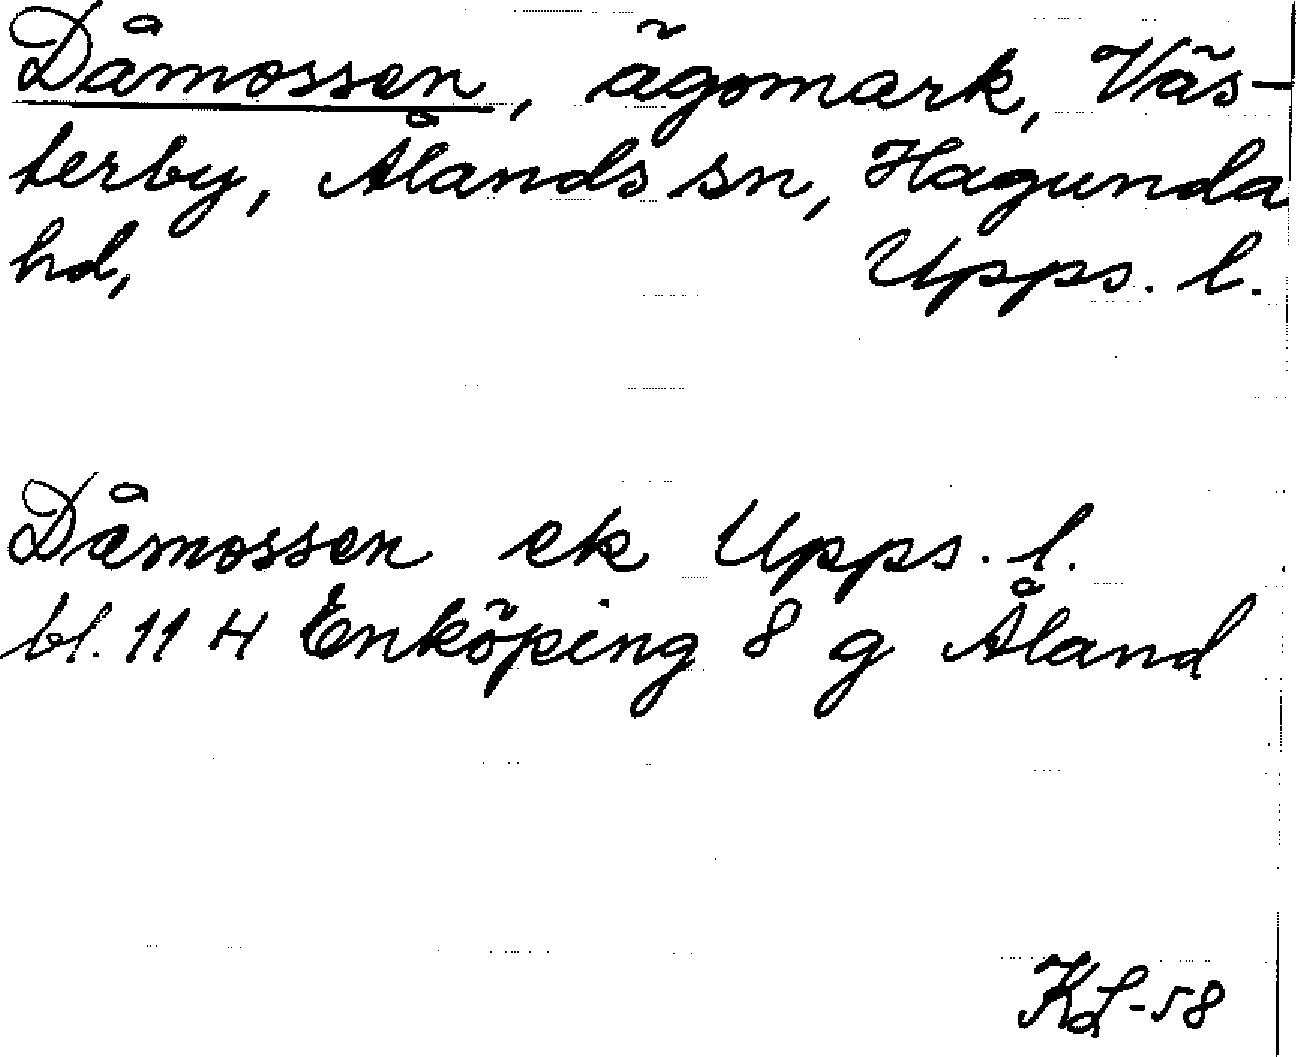 Dåmossen, ägomark, Väs-
terby, Ålands sn, Hagunda
hd, Upps. l.
Dåmossen ek Upps. l.
bl. 11 H Enköping 8 g Åland
KL-58